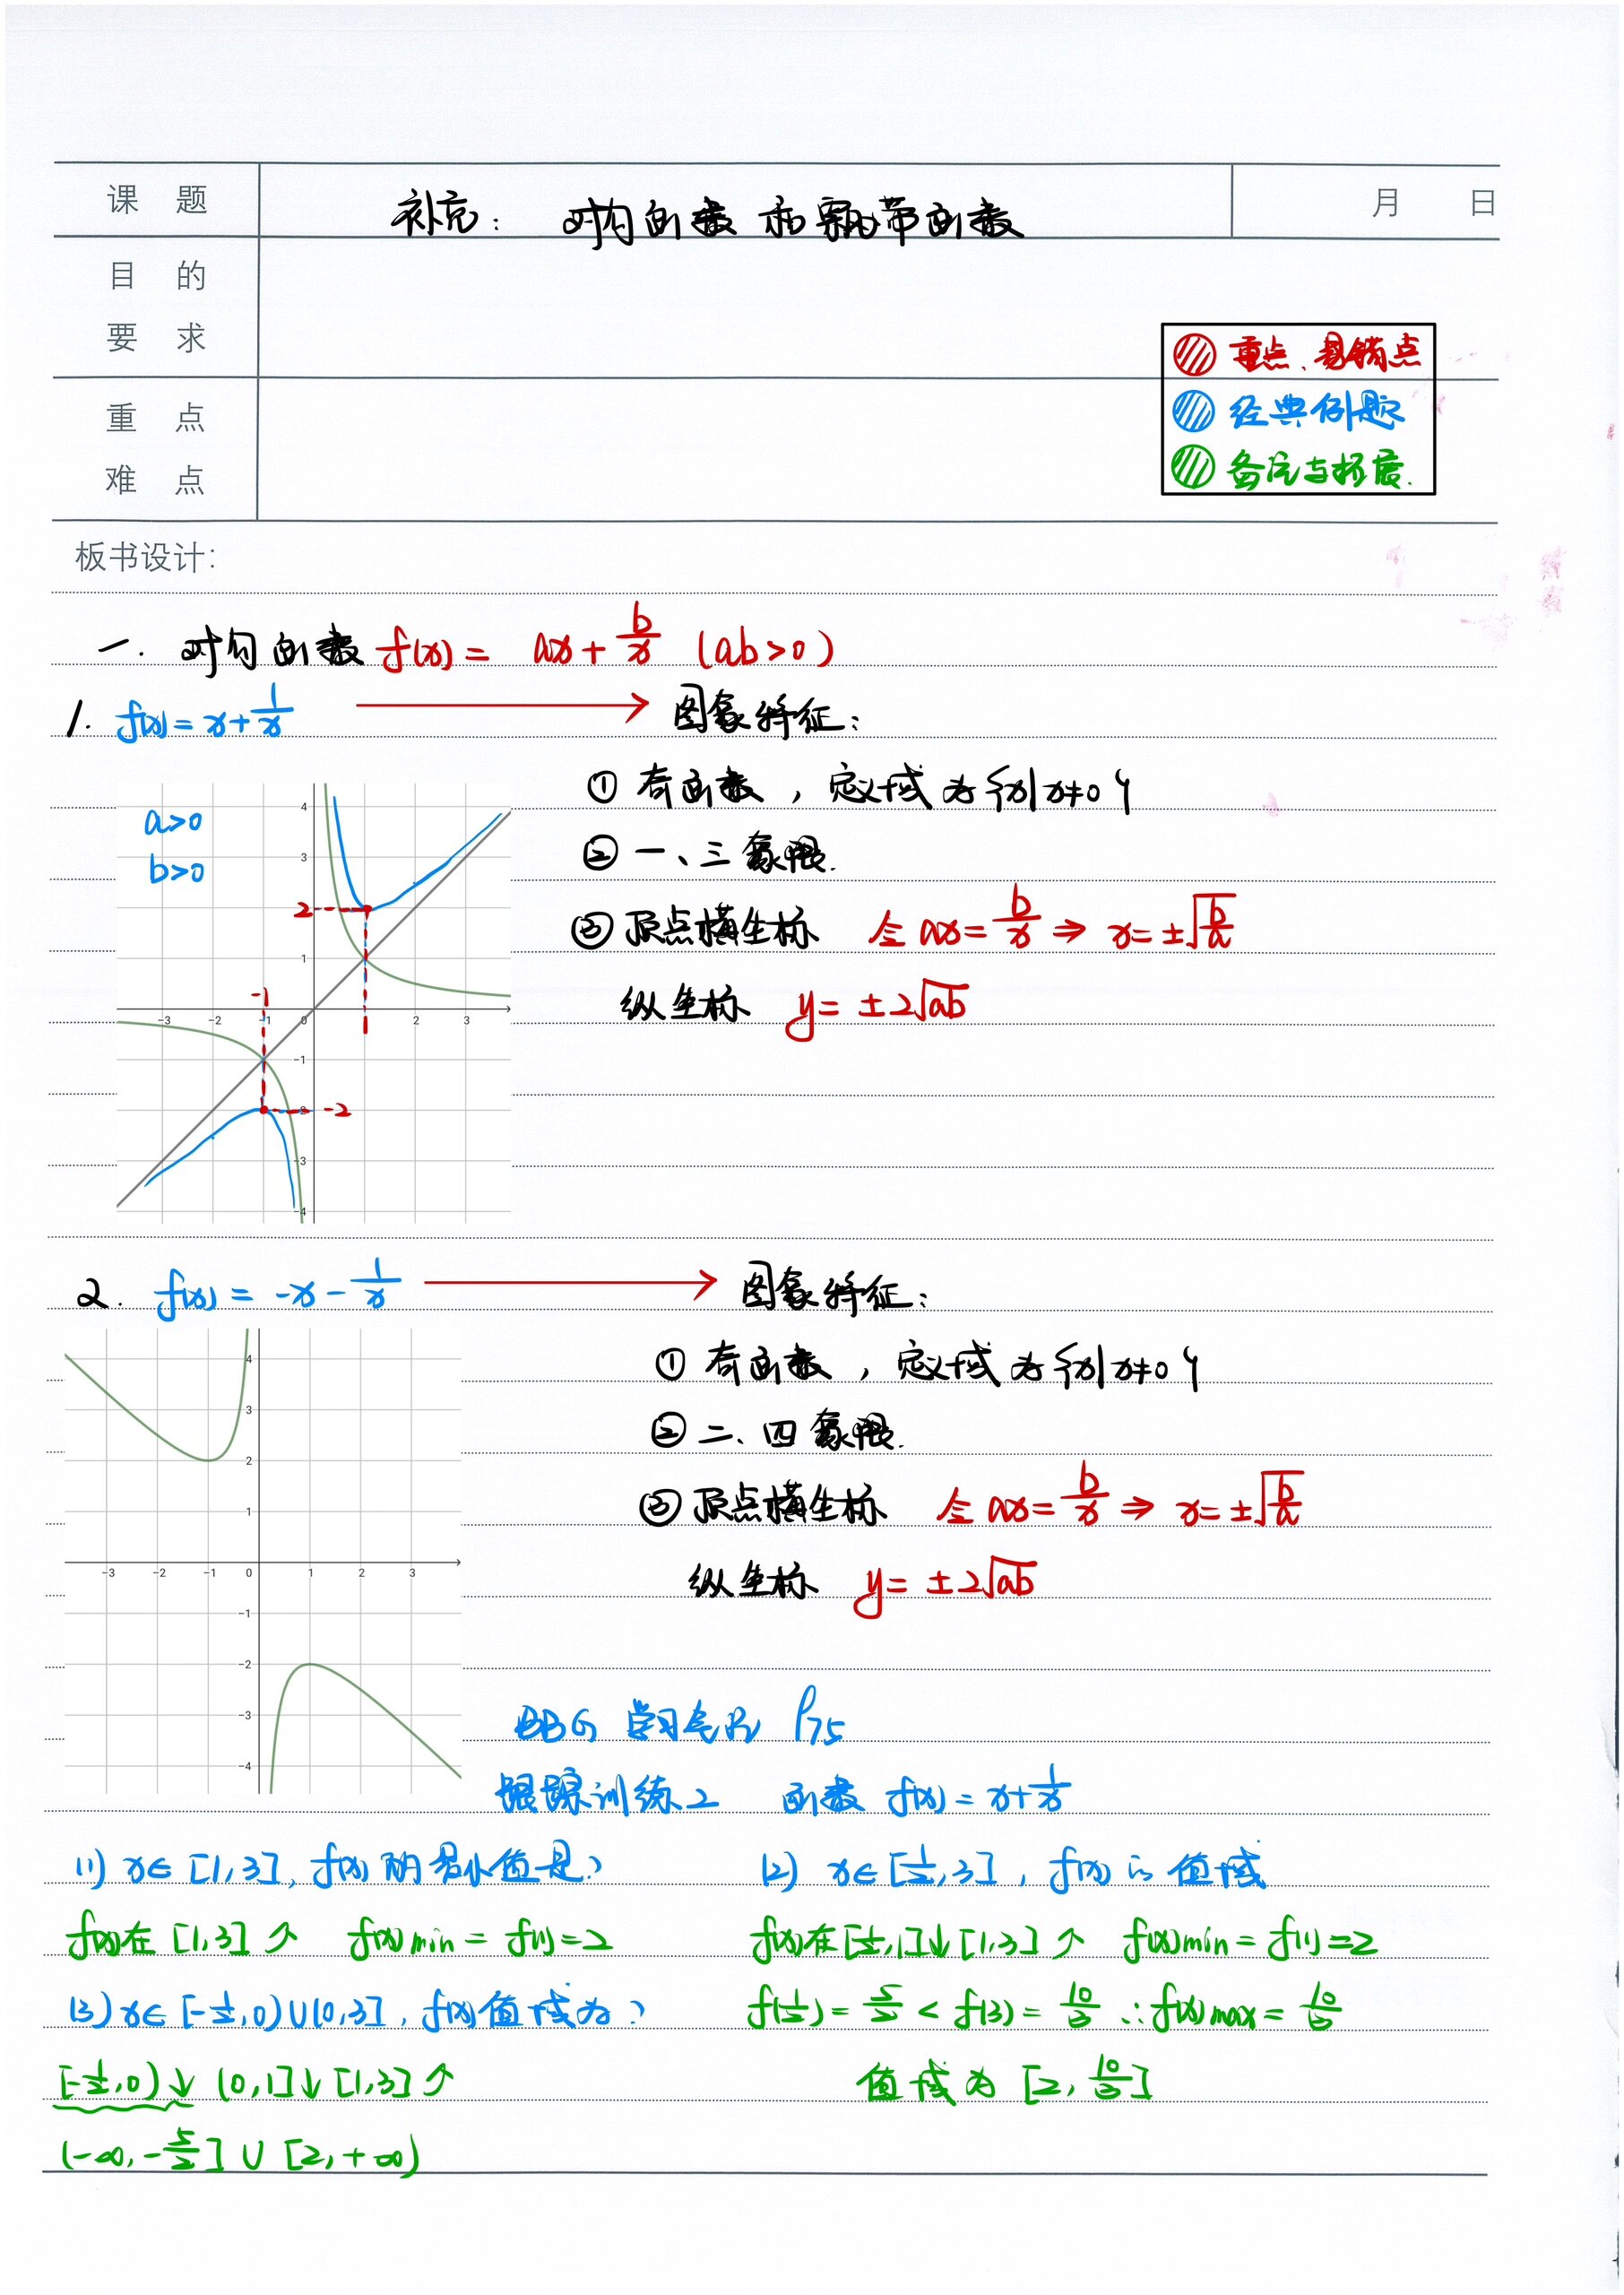 课 题 补充： 对勾函数 和 飘带函数 月 日
目 的
要 求
重点、易错点
重 点
经典例题
难 点
备注与拓展.
板书设计:
一. 对勾函数 f(x) = ax + b/x (ab>0)
1. f(x) = x + 1/x → 图象特征：
a>0
b>0
① 奇函数，定义域为{x|x≠0}
② 一、三象限.
③ 顶点横坐标 令 ax = b/x ⇒ x = ±√(b/a)
纵坐标 y = ±2√(ab)
4
3
2
1
-1
-3 -2 -1 0 2 3
-1
-2 -2
-3
-4
2. f(x) = -x - 1/x → 图象特征：
① 奇函数，定义域为{x|x≠0}
② 二、四象限.
③ 顶点横坐标 令 ax = b/x ⇒ x = ±√(b/a)
纵坐标 y = ±2√(ab)
4
3
2
1
-3 -2 -1 0 1 2 3
-1
-2
-3
-4
学习 P75
跟踪训练2 函数 f(x) = x + 1/x
(1) x∈[1,3], f(x)的最小值是？
(2) x∈[1/2,3], f(x)的值域
f(x)在[1,3]↗ f(x)min = f(1) = 2
f(x)在[1/2,1]↓[1,3]↗ f(x)min = f(1) = 2
(3) x∈[-1/2,0)∪(0,3], f(x)值域为？
f(1/2) = 5/2 < f(3) = 10/3 ∴f(x)max = 10/3
[-1/2,0)↓ (0,1]↓[1,3]↗
值域为 [2, 10/3]
(-∞, -5/2] ∪ [2, +∞)